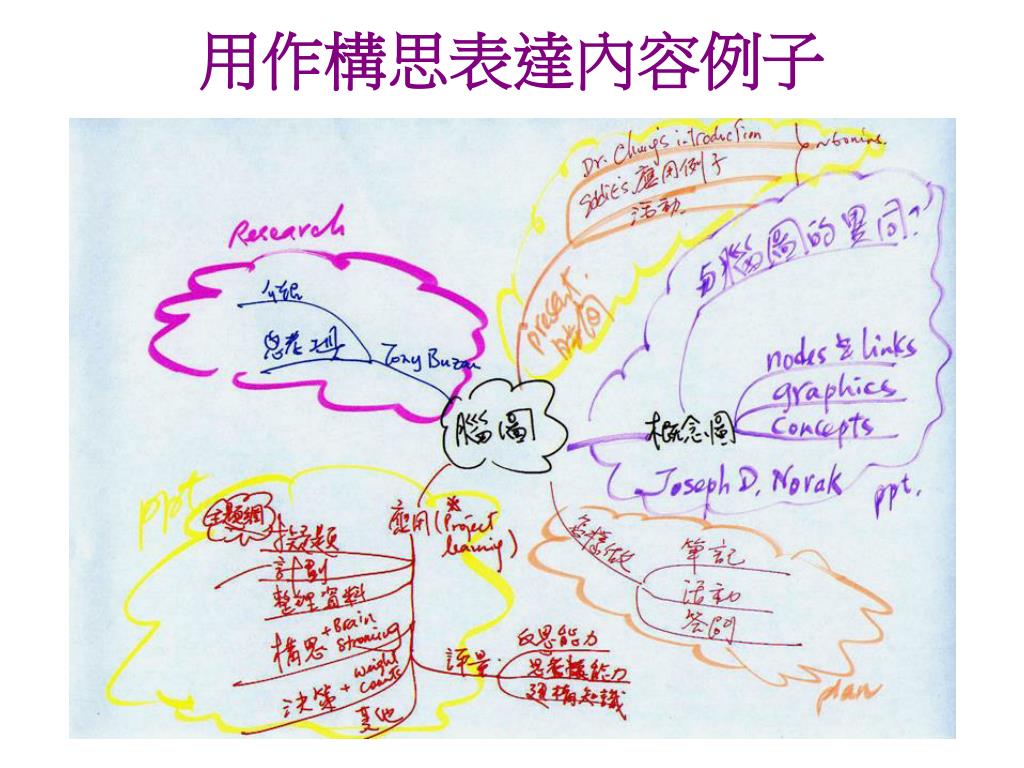 用作構思表達內容例子
Dr. Chung's introduction
Eddie's 應用例子
活動
Research
介紹
思考工具
Tony Buzan
present
時間
與腦圖的異同?
nodes & links
graphics
concepts
概念圖
Joseph D. Novak
ppt.
腦圖
ppt
主題網
應用 (* Project
learning)
擬題
計劃
整理資料
構思 + Brain
Stroming
決策 + weight
counts
其他
評量
反思能力
思考樣能力
怎樣做
筆記
活動
答問
plan